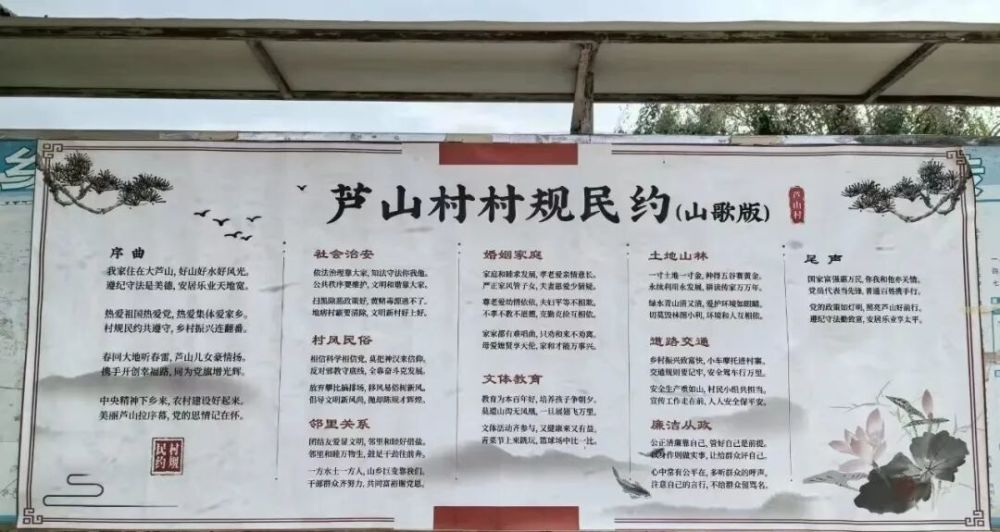 芦山村村规民约(山歌版)
芦山村
序曲
我家住在大芦山, 好山好水好风光。
遵纪守法是美德, 安居乐业天地宽。
热爱祖国热爱党, 热爱集体爱家乡。
村规民约共遵守, 乡村振兴连翻番。
春回大地听春雷, 芦山儿女豪情扬。
携手开创幸福路, 同为党旗增光辉。
中央精神下乡来, 农村建设好起来。
美丽芦山拉序幕, 党的恩情记在怀。
村规
民约
社会治安
依法治理靠大家, 知法守法你我他。
公共秩序要维护, 文明和谐靠大家。
扫黑除恶政策好, 黄赌毒源遁不了。
地痞村霸要清除, 文明新村好上好。
村风民俗
相信科学相信党, 莫把神汉来信仰。
反对邪教守底线, 全靠奋斗克发展。
放弃攀比搞排场, 移风易俗树新风。
倡导文明新风尚, 抛却陈规才辉煌。
邻里关系
团结友爱显文明, 邻里和睦好借盐。
邻里和睦万物生, 鼓足干劲往前奔。
一方水土一方人, 山乡巨变靠我们。
干部群众齐努力, 共同富裕谢党恩。
婚姻家庭
家庭和睦求发展, 孝老爱亲情意长。
严正家风管子女, 夫妻恩爱少烦恼。
尊老爱幼情依依, 夫妇平等不相欺。
不孝不敬不道德, 克勤克俭互相依。
家家都有难唱曲, 只劝和来不劝离。
母爱媳贤享天伦, 家和才能万事兴。
文体教育
教育为本百年好, 培养孩子争朝夕。
莫道山沟无凤凰, 一旦展翅飞万里。
文体活动齐参与, 又健康来又有益。
苦菜节上来跳玩, 篮球场中比一比。
土地山林
一寸土地一寸金, 种得五谷赛黄金。
永续利用水发展, 耕读传家万万年。
绿水青山清又清, 爱护环境如眼睛。
切莫毁林图小利, 环境和人互相依。
道路交通
乡村振兴致富快, 小车摩托进村寨。
交通规则要记牢, 安全驾车行万里。
安全生产重如山, 村民小组共担当。
宣传工作走在前, 人人安全保平安。
廉洁从政
公正清廉靠自己, 管好自己是前提。
以身作则做实事, 让给群众评自己。
心中常有公平在, 多听群众的呼声。
注意自己的言行, 不给群众留骂名。
尾声
国家富强惠万民, 你我和他亦关情。
党员代表当先锋, 普通百姓携手行。
党的政策如灯明, 照亮芦山好前行。
遵纪守法勤致富, 安居乐业享太平。